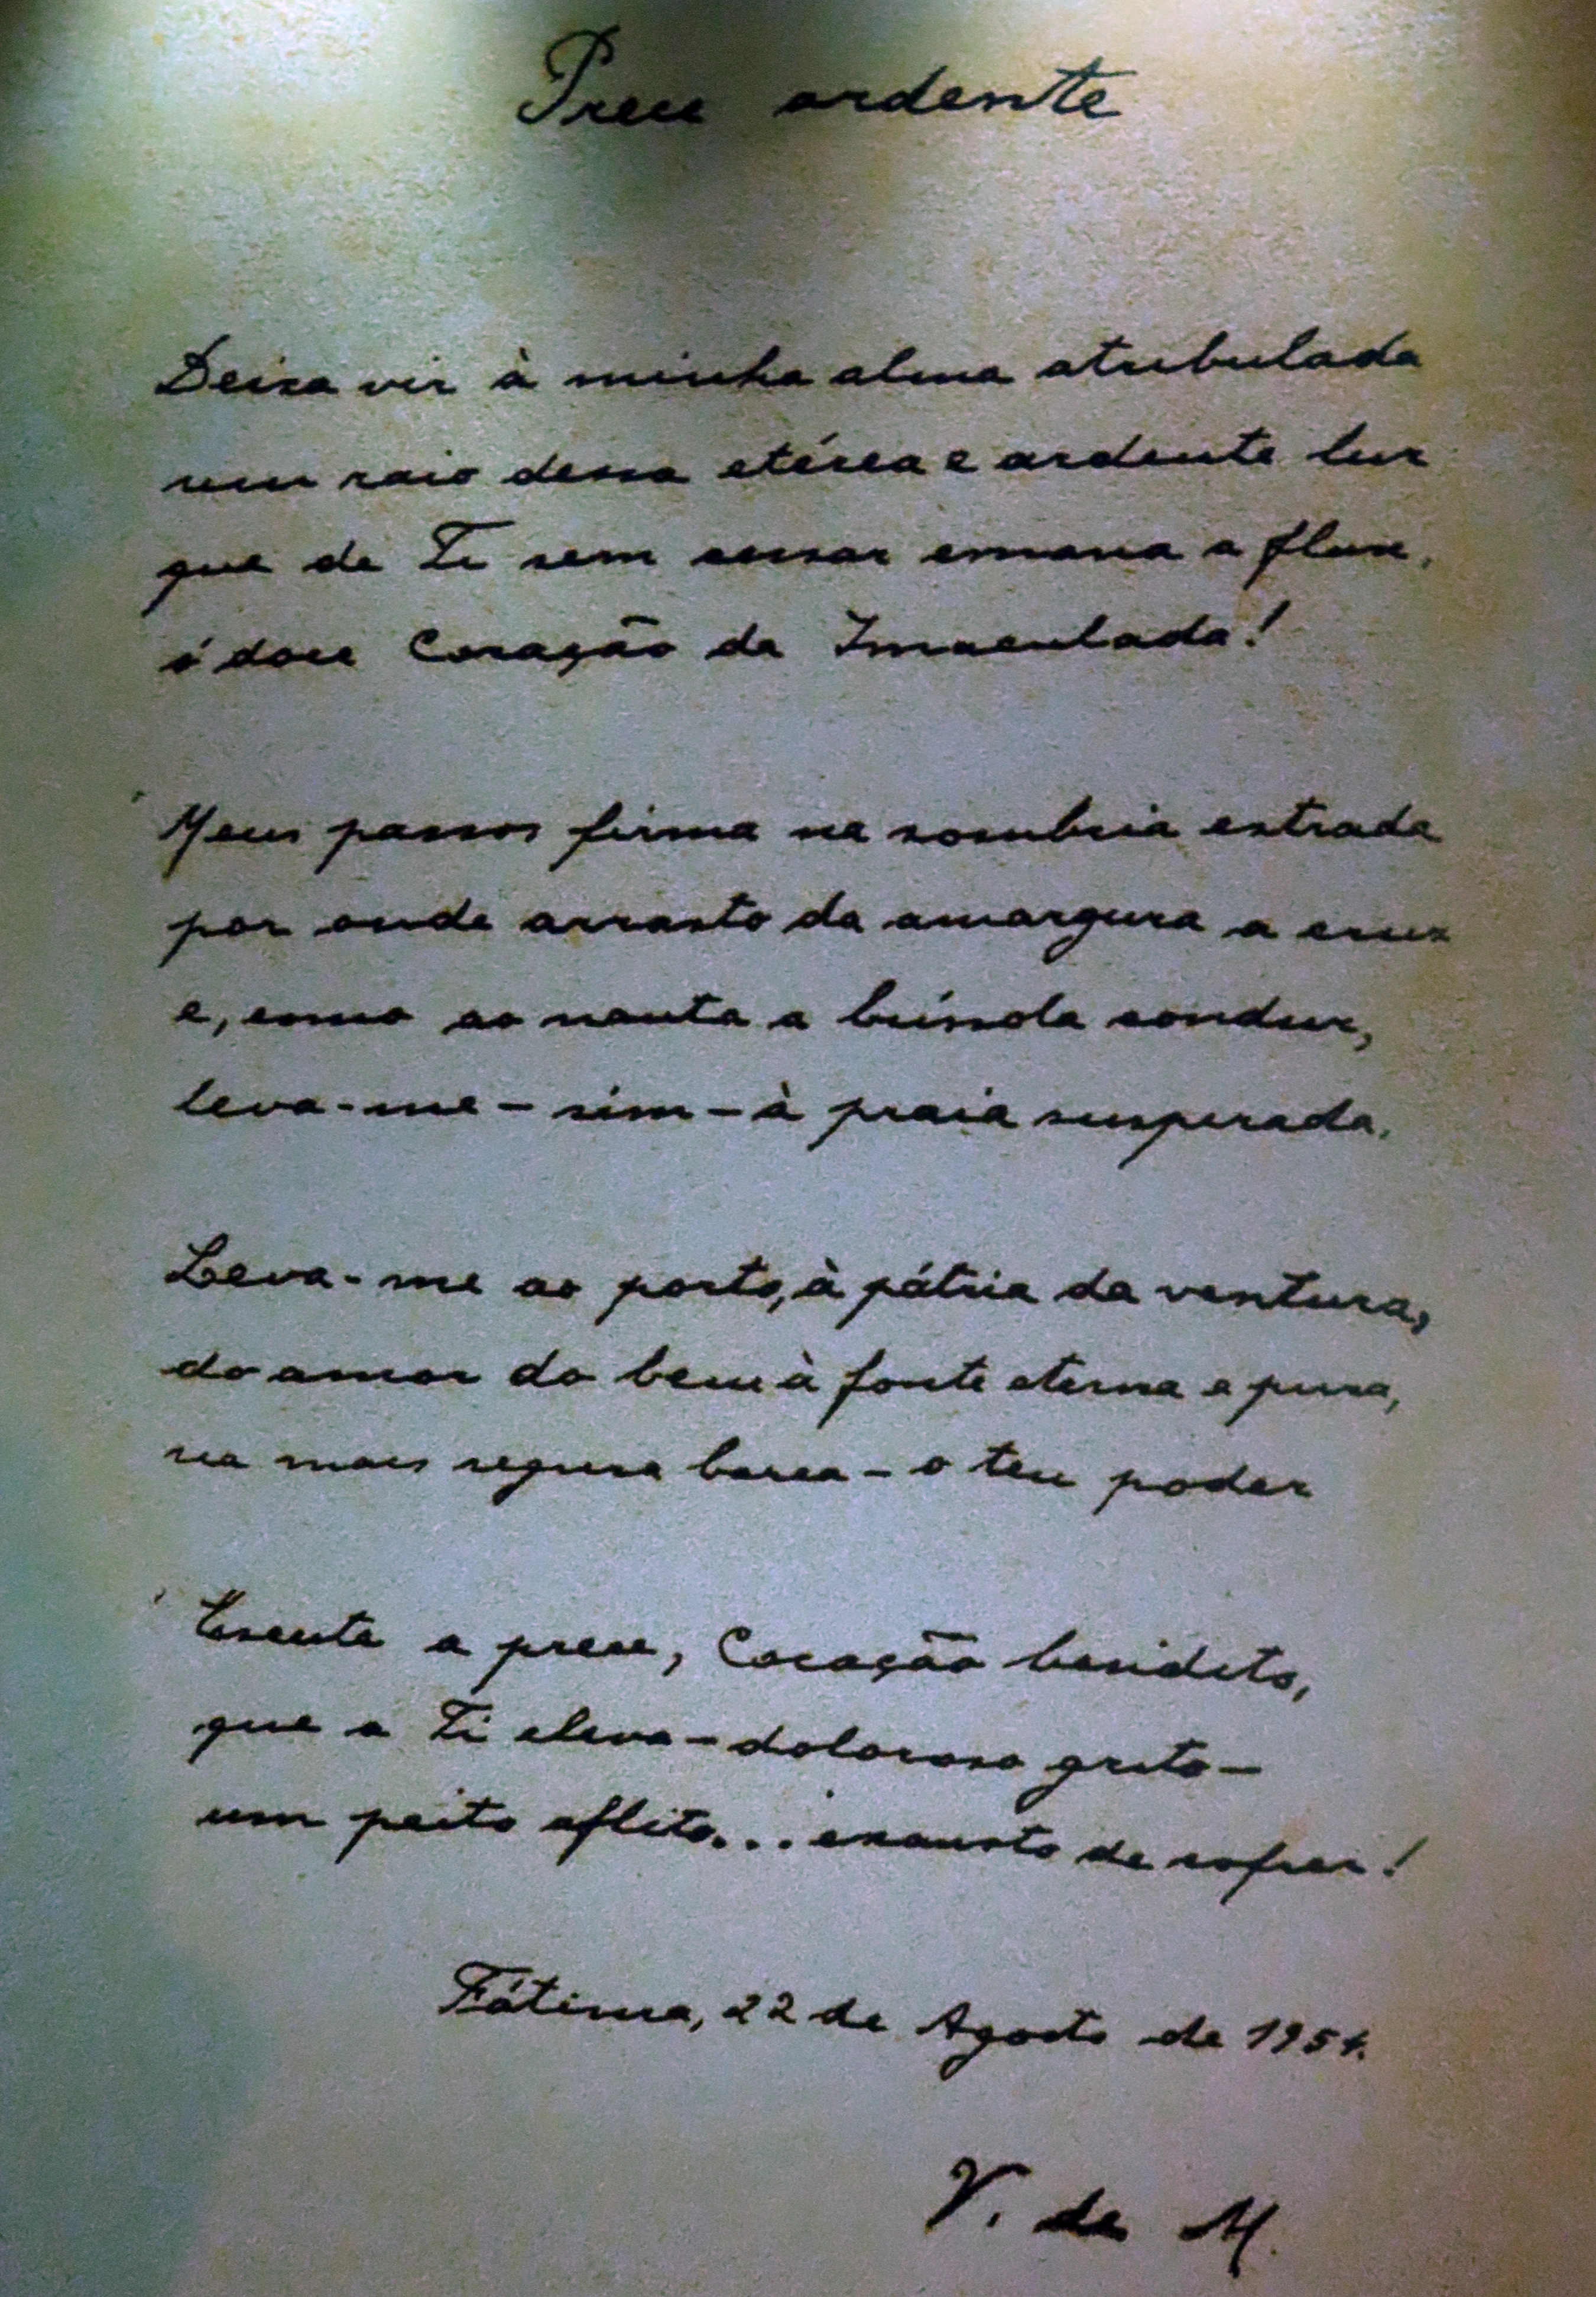 Prece ardente
Deixa vir à minha alma atribulada
um raio dessa etérea e ardente luz
que de Ti sem cessar emana a flux,
ó doce Coração da Imaculada!
Meus passos firma na sombria estrada
por onde arrasto da amargura a cruz
e, como ao nauta a bússola conduz,
leva-me - sim - à praia suspirada.
Leva-me ao porto, à pátria da ventura,
do amor do bem à fonte eterna e pura,
na mais segura barca - o teu poder
Escuta a prece, Coração bendito,
que a Ti eleva - doloroso grito -
um peito aflito... exausto de sofrer!
Fátima, 22 de Agosto de 1951.
V. de M.